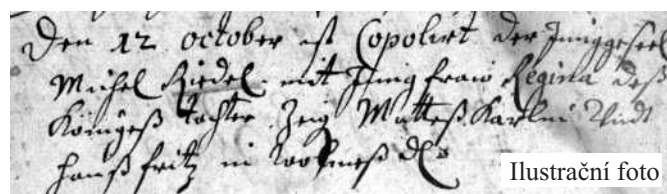 Den 12 october ist Copolirt der Junggesell
Michel Riedel. mit Jungfraw Regina deß
Königeß tochter. Zeug Matteß Karlni Vndt
Hanß fritz in
Ilustrační foto